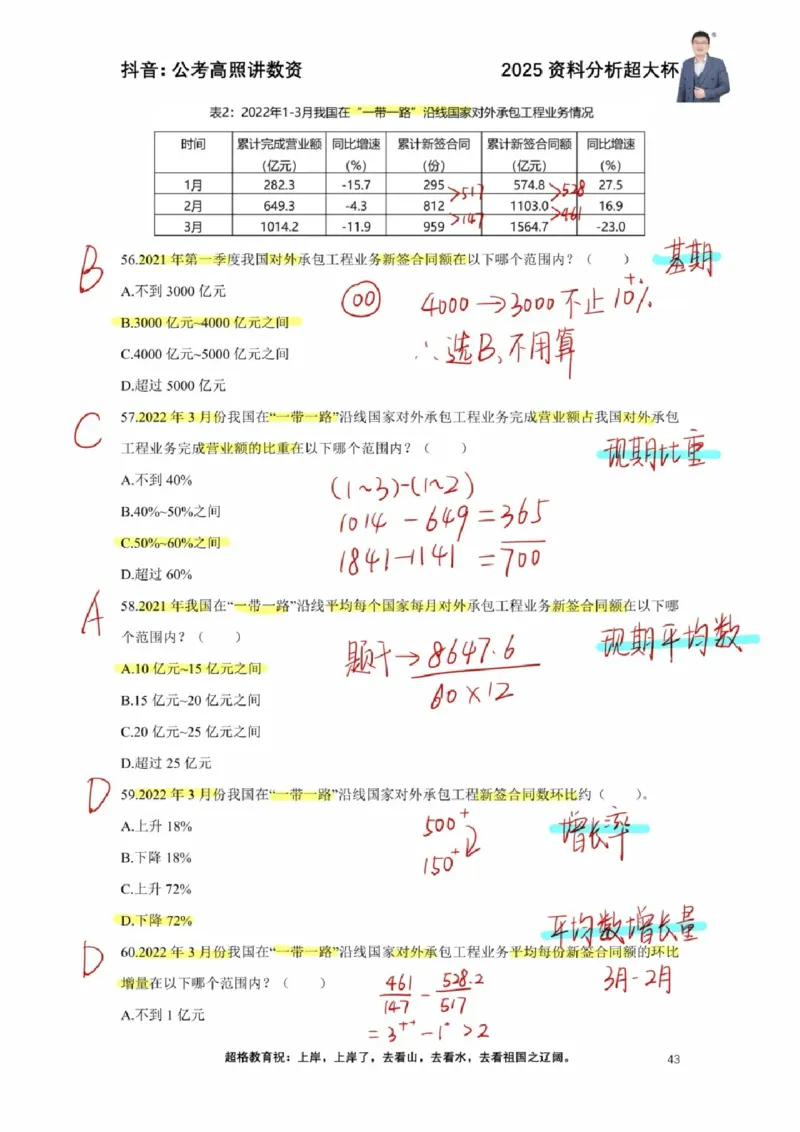 抖音：公考高照讲数资
2025 资料分析超大杯
表2：2022年1-3月我国在“一带一路”沿线国家对外承包工程业务情况
时间 累计完成营业额（亿元） 同比增速（%） 累计新签合同（份） 累计新签合同额（亿元） 同比增速（%）
1月 282.3 -15.7 295 574.8 27.5
>517 >528
2月 649.3 -4.3 812 1103.0 16.9
>147 >461
3月 1014.2 -11.9 959 1564.7 -23.0
B
56.2021 年第一季度我国对外承包工程业务新签合同额在以下哪个范围内？（ ）
基期
A.不到 3000 亿元
00
4000→3000不止10+%
B.3000 亿元~4000 亿元之间
∴选B、不用算
C.4000 亿元~5000 亿元之间
D.超过 5000 亿元
C
57.2022 年 3 月份我国在“一带一路”沿线国家对外承包工程业务完成营业额占我国对外承包
工程业务完成营业额的比重在以下哪个范围内？（ ）
现期比重
A.不到 40%
(1~3)-(1~2)
B.40%~50%之间
1014-649=365
C.50%~60%之间
1841-1141=700
D.超过 60%
A
58.2021 年我国在“一带一路”沿线平均每个国家每月对外承包工程业务新签合同额在以下哪
个范围内？（ ）
现期平均数
题干→8647.6
60×12
A.10 亿元~15 亿元之间
B.15 亿元~20 亿元之间
C.20 亿元~25 亿元之间
D.超过 25 亿元
D
59.2022 年 3 月份我国在“一带一路”沿线国家对外承包工程新签合同数环比约（ ）。
A.上升 18%
500+
增长率
B.下降 18%
150+
C.上升 72%
D.下降 72%
平均数增长量
D
60.2022 年 3 月份我国在“一带一路”沿线国家对外承包工程业务平均每份新签合同额的环比
增量在以下哪个范围内？（ ）
3月-2月
461/147-528.2/517
A.不到 1 亿元
=3++-1+>2
超格教育祝：上岸，上岸了，去看山，去看水，去看祖国之辽阔。
43